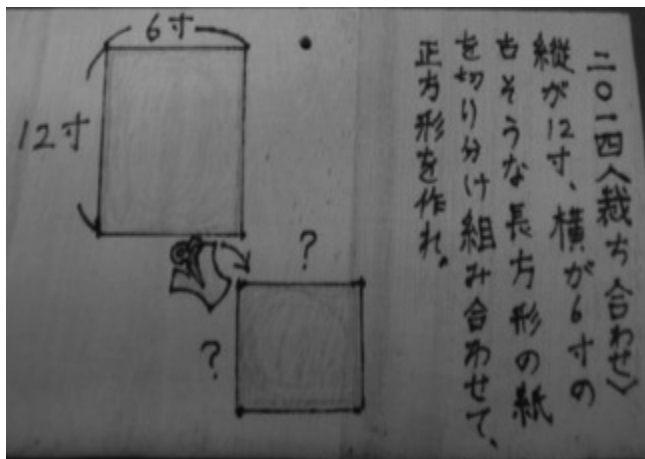 二〇一四〈裁ち合わせ〉
縦が12寸、横が6寸の
古そうな長方形の紙
を切り分け組み合わせて、
正方形を作れ。
6寸
12寸
?
?